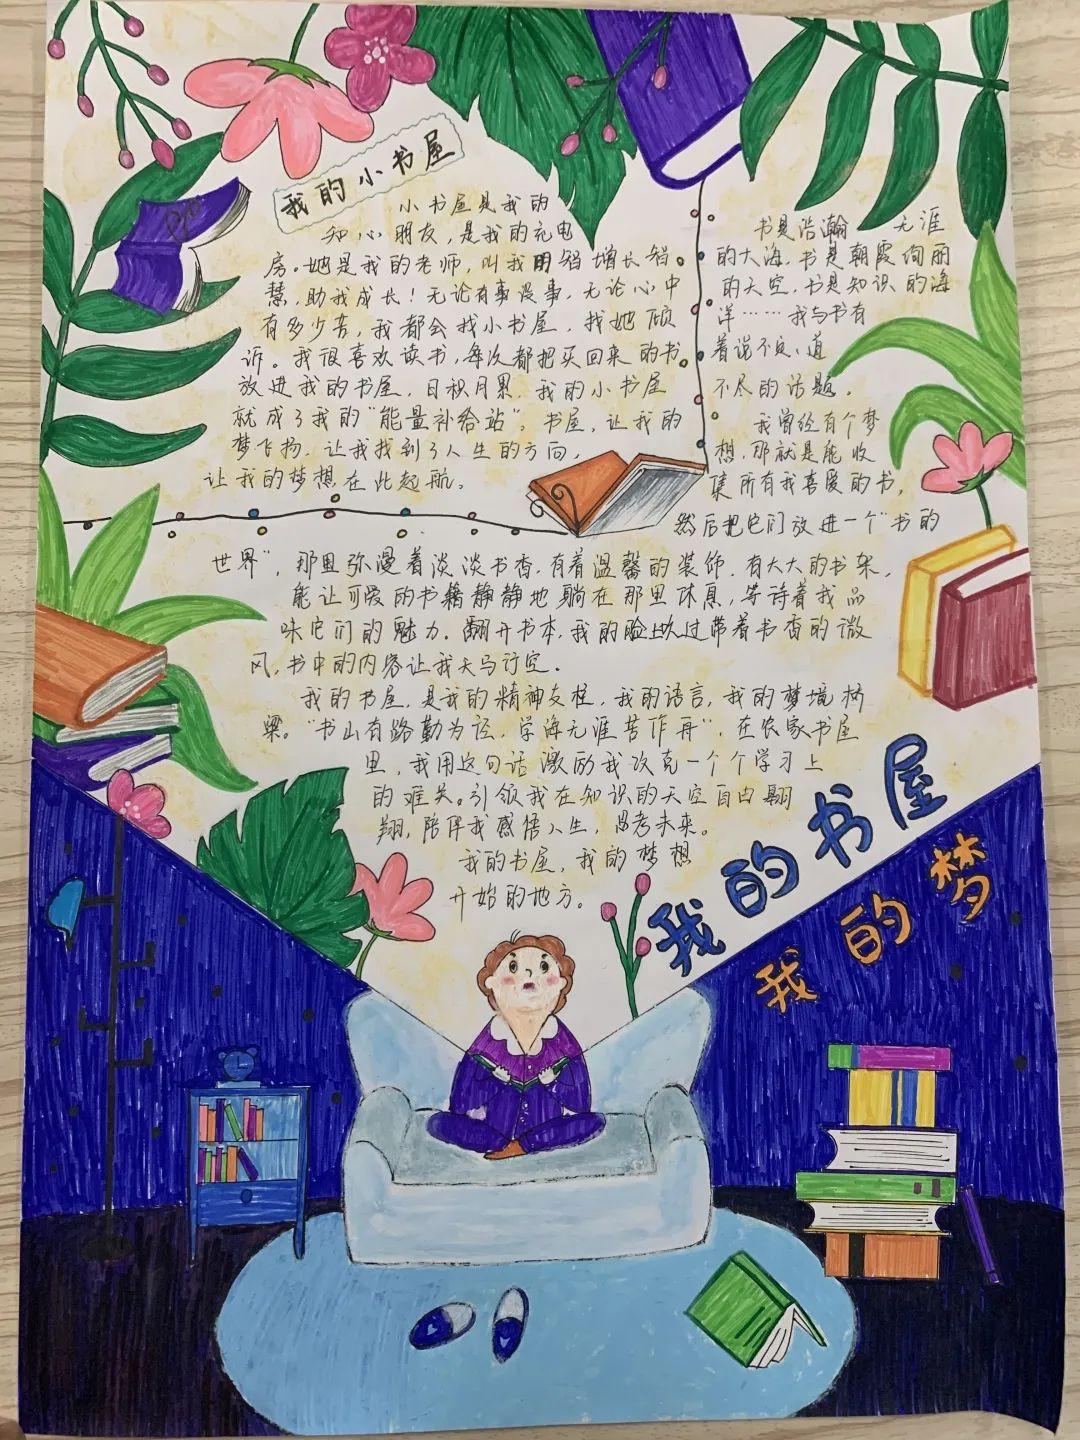 我的小书屋
小书屋是我的
知心朋友，是我的充电
房。她是我的老师，叫我用知增长智
慧，助我成长！无论有事没事，无论心中
有多少苦，我都会找小书屋，找她倾
诉。我很喜欢读书，每次都把买回来的书
放进我的书屋，日积月累，我的小书屋
就成了我的“能量补给站”。书屋，让我的
梦飞扬，让我找到了人生的方向，
让我的梦想在此起航。
书是浩瀚无涯
的大海，书是朝霞绚丽
的天空，书是知识的海
洋……我与书有
着说不完、道
不尽的话题。
我曾经有个梦
想，那就是能收
集所有我喜爱的书，
然后把它们放进一个“书的
世界”，那里弥漫着淡淡书香，有着温馨的装饰，有大大的书架，
能让可爱的书籍静静地躺在那里休息，等待着我品
味它们的魅力。翻开书本，我的脸上吹过带着书香的微
风，书中的内容让我天马行空。
我的书屋，是我的精神支柱，我的语言，我的梦境桥
梁。“书山有路勤为径，学海无涯苦作舟”，在农家书屋
里，我用这句话激励我攻克一个个学习上
的难关。引领我在知识的天空自由翱
翔，陪伴我感悟人生，思考未来。
我的书屋，我的梦想
开始的地方。
我的书屋
我的梦